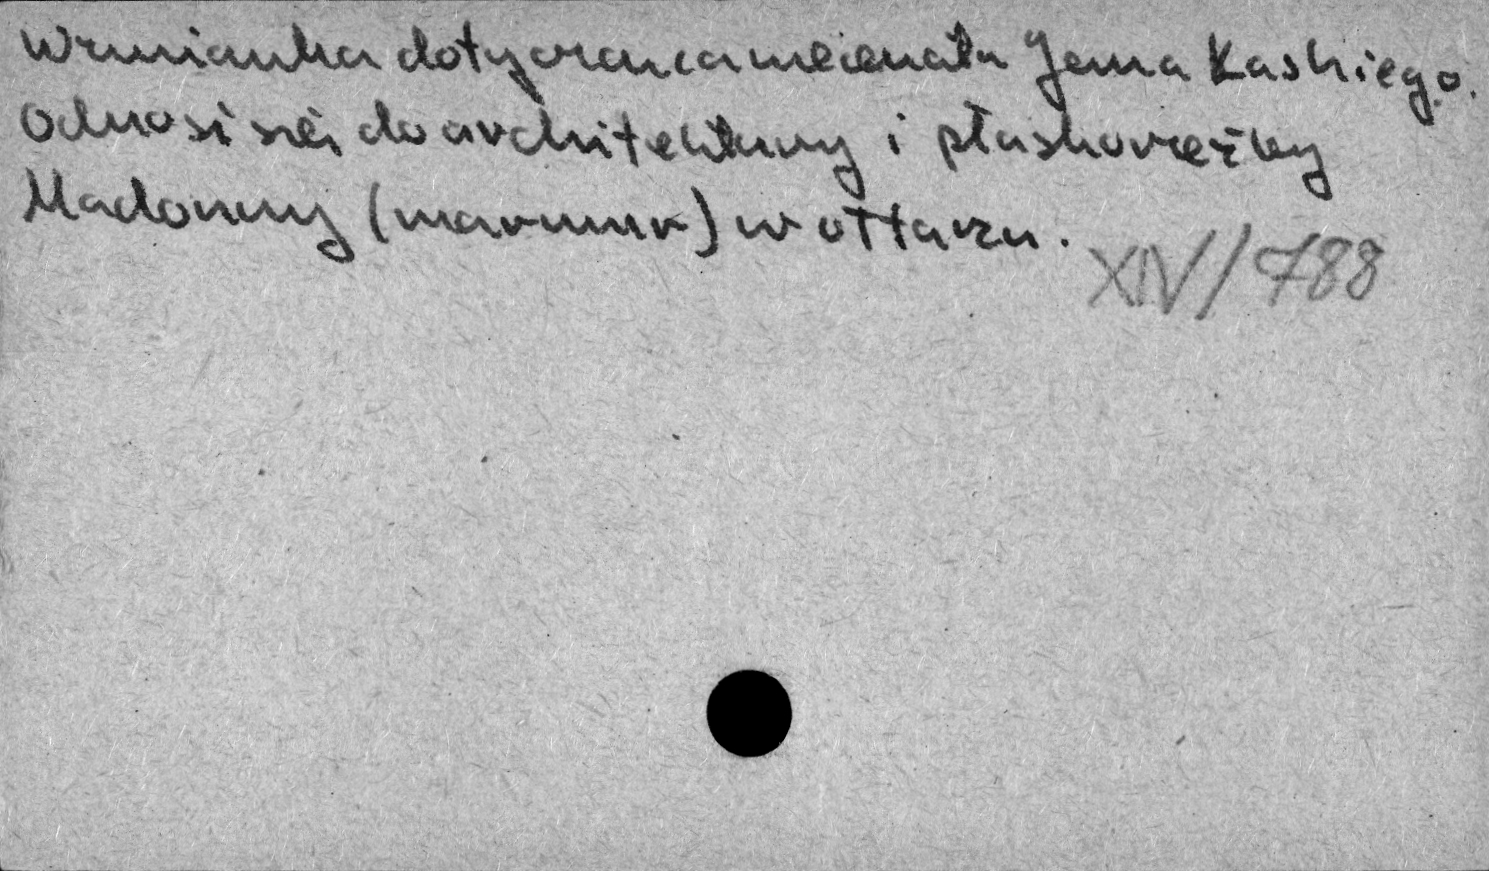 Wzmianka dotycząca mecenatu Jana Kaskiego.
Odnosi się do architektury i płaskorzeźby
Madonny (marmur) w ołtarzu.
XIV/788